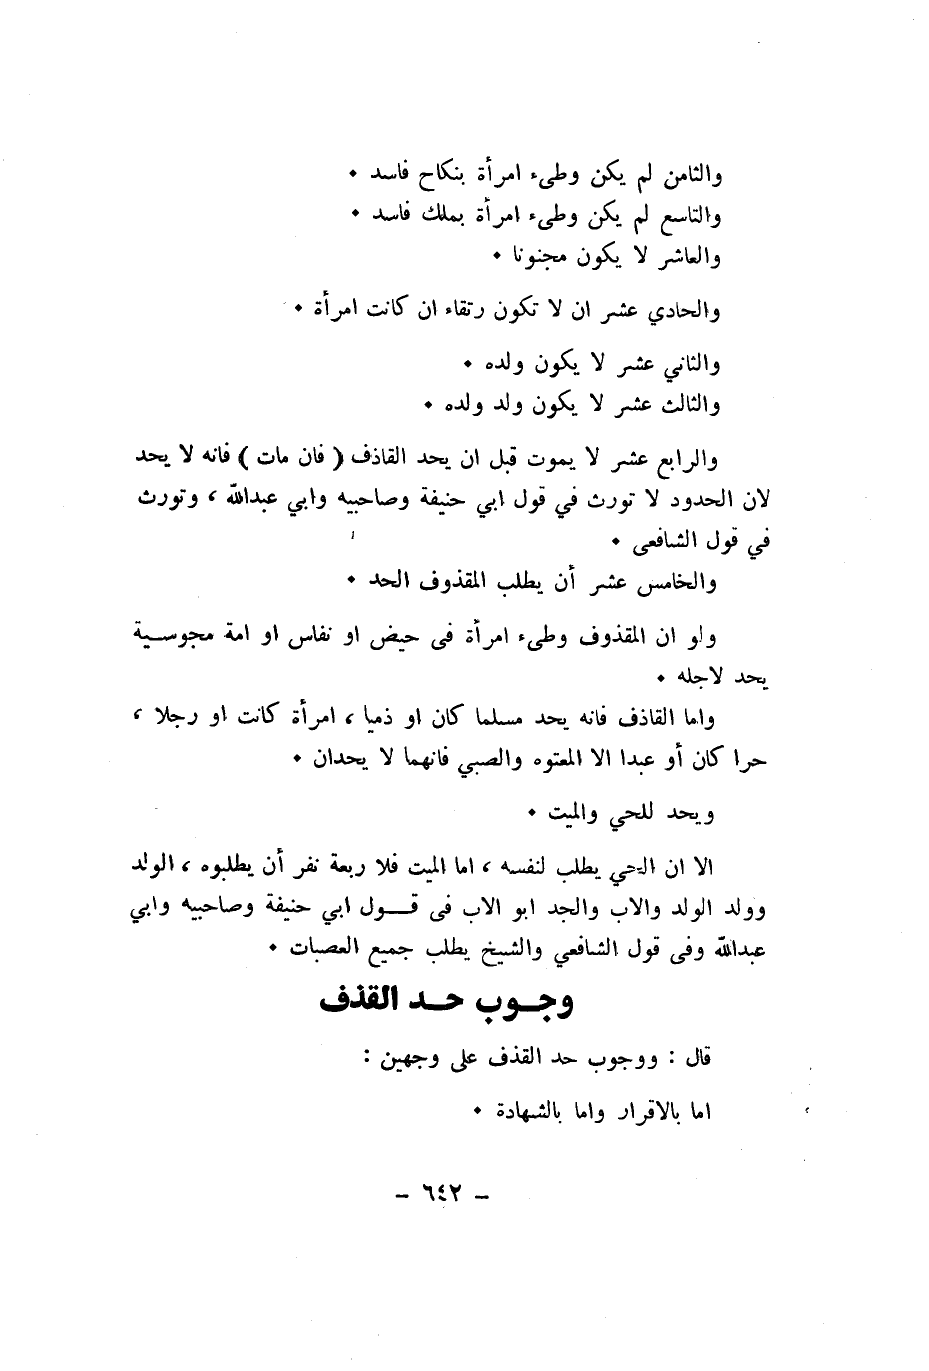 والثامن لم يكن وطىء امرأة بنكاح فاسد ٠
والتاسع لم يكن وطىء امرأة بملك فاسد ٠
والعاشر لا يكون مجنونا ٠
والحادي عشر ان لا تكون رتقاء ان كانت امرأة ٠
والثاني عشر لا يكون ولده ٠
والثالث عشر لا يكون ولد ولده ٠
والرابع عشر لا يموت قبل ان يحد القاذف ( فان مات ) فانه لا يحد
لان الحدود لا تورث في قول ابي حنيفة وصاحبيه وابي عبدالله ، وتورث
في قول الشافعى ٠
والخامس عشر أن يطلب المقذوف الحد ٠
ولو ان المقذوف وطىء امرأة فى حيض او نفاس او امة مجوســية
يحد لاجله ٠
واما القاذف فانه يحد مسلما كان او ذميا ، امرأة كانت او رجلا ،
حرا كان أو عبدا الا المعتوه والصبي فانهما لا يحدان ٠
ويحد للحي والميت ٠
الا ان الحي يطلب لنفسه ، اما الميت فلا ربعة نفر أن يطلبوه ، الولد
وولد الولد والاب والجد ابو الاب فى قــول ابي حنيفة وصاحبيه وابي
عبدالله وفى قول الشافعي والشيخ يطلب جميع العصبات ٠
وجــوب حــد القذف
قال : ووجوب حد القذف على وجهين :
اما بالاقرار واما بالشهادة ٠
– ٦٤٢ –